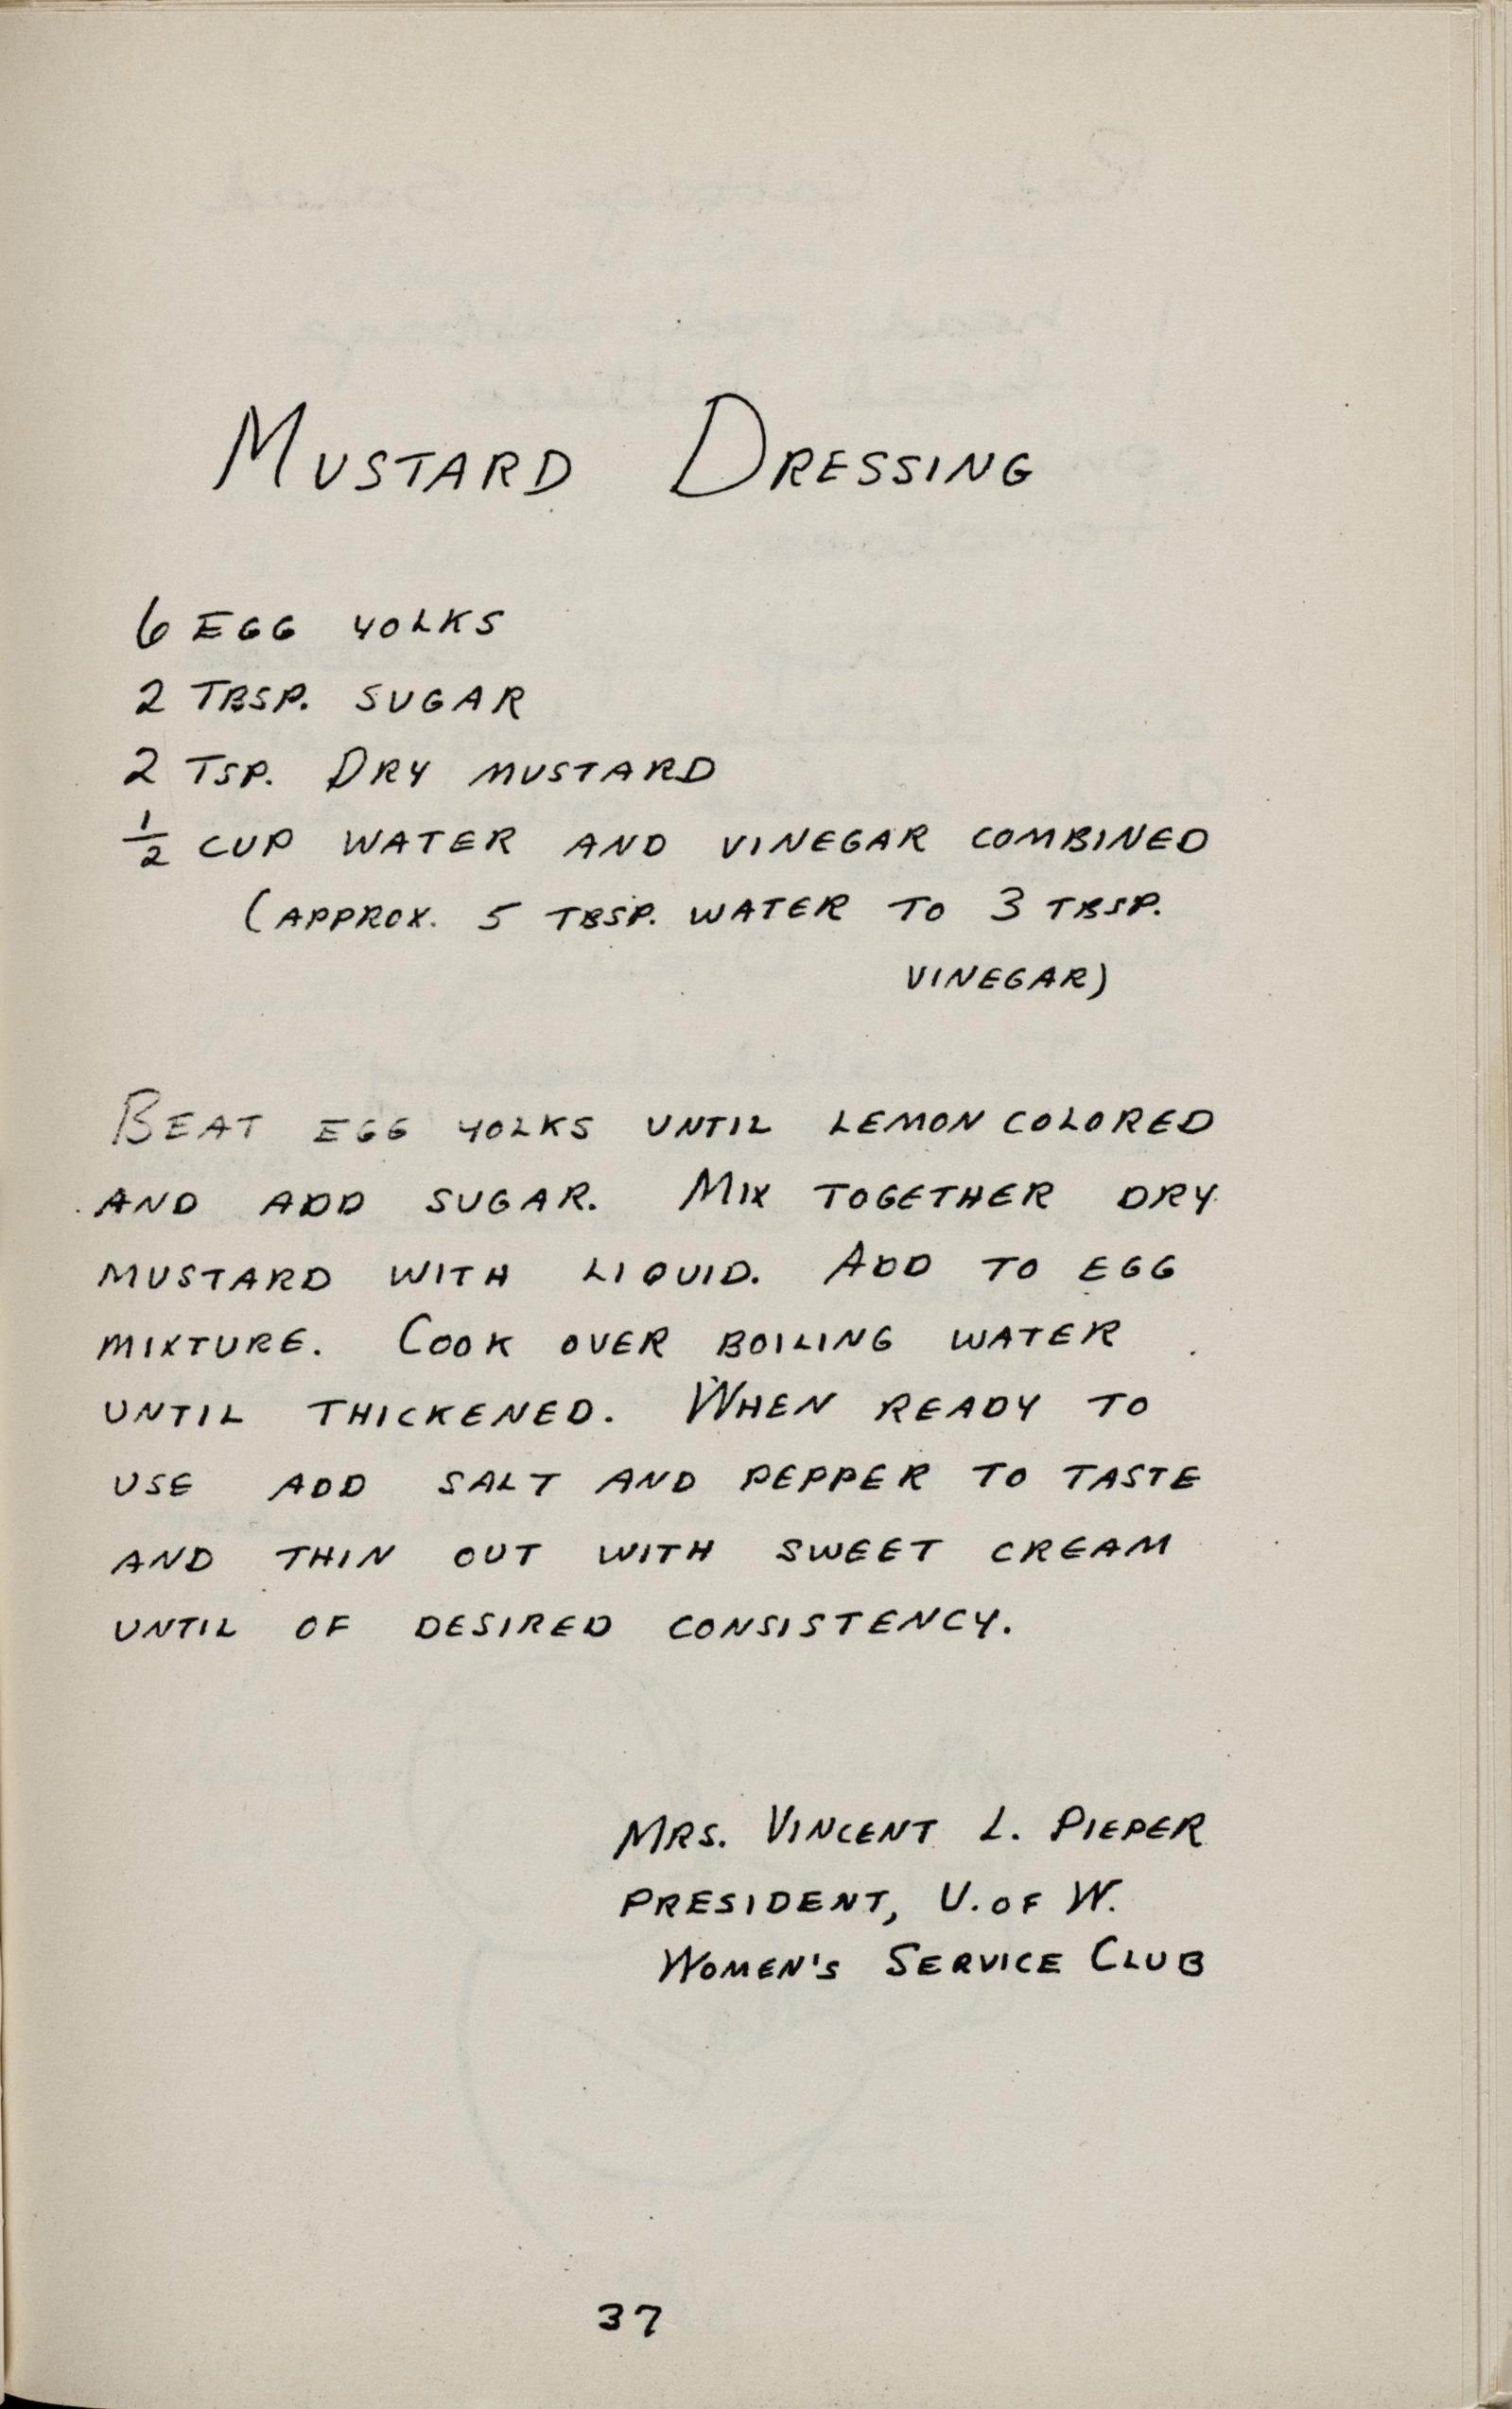 MUSTARD DRESSING
6 EGG YOLKS
2 TBSP. SUGAR
2 TSP. DRY MUSTARD
1/2 CUP WATER AND VINEGAR COMBINED
(APPROX. 5 TBSP. WATER TO 3 TBSP.
VINEGAR)
BEAT EGG YOLKS UNTIL LEMON COLORED
AND ADD SUGAR. MIX TOGETHER DRY
MUSTARD WITH LIQUID. ADD TO EGG
MIXTURE. COOK OVER BOILING WATER
UNTIL THICKENED. WHEN READY TO
USE ADD SALT AND PEPPER TO TASTE
AND THIN OUT WITH SWEET CREAM
UNTIL OF DESIRED CONSISTENCY.
MRS. VINCENT L. PIEPER
PRESIDENT, U. OF W.
WOMEN'S SERVICE CLUB
37